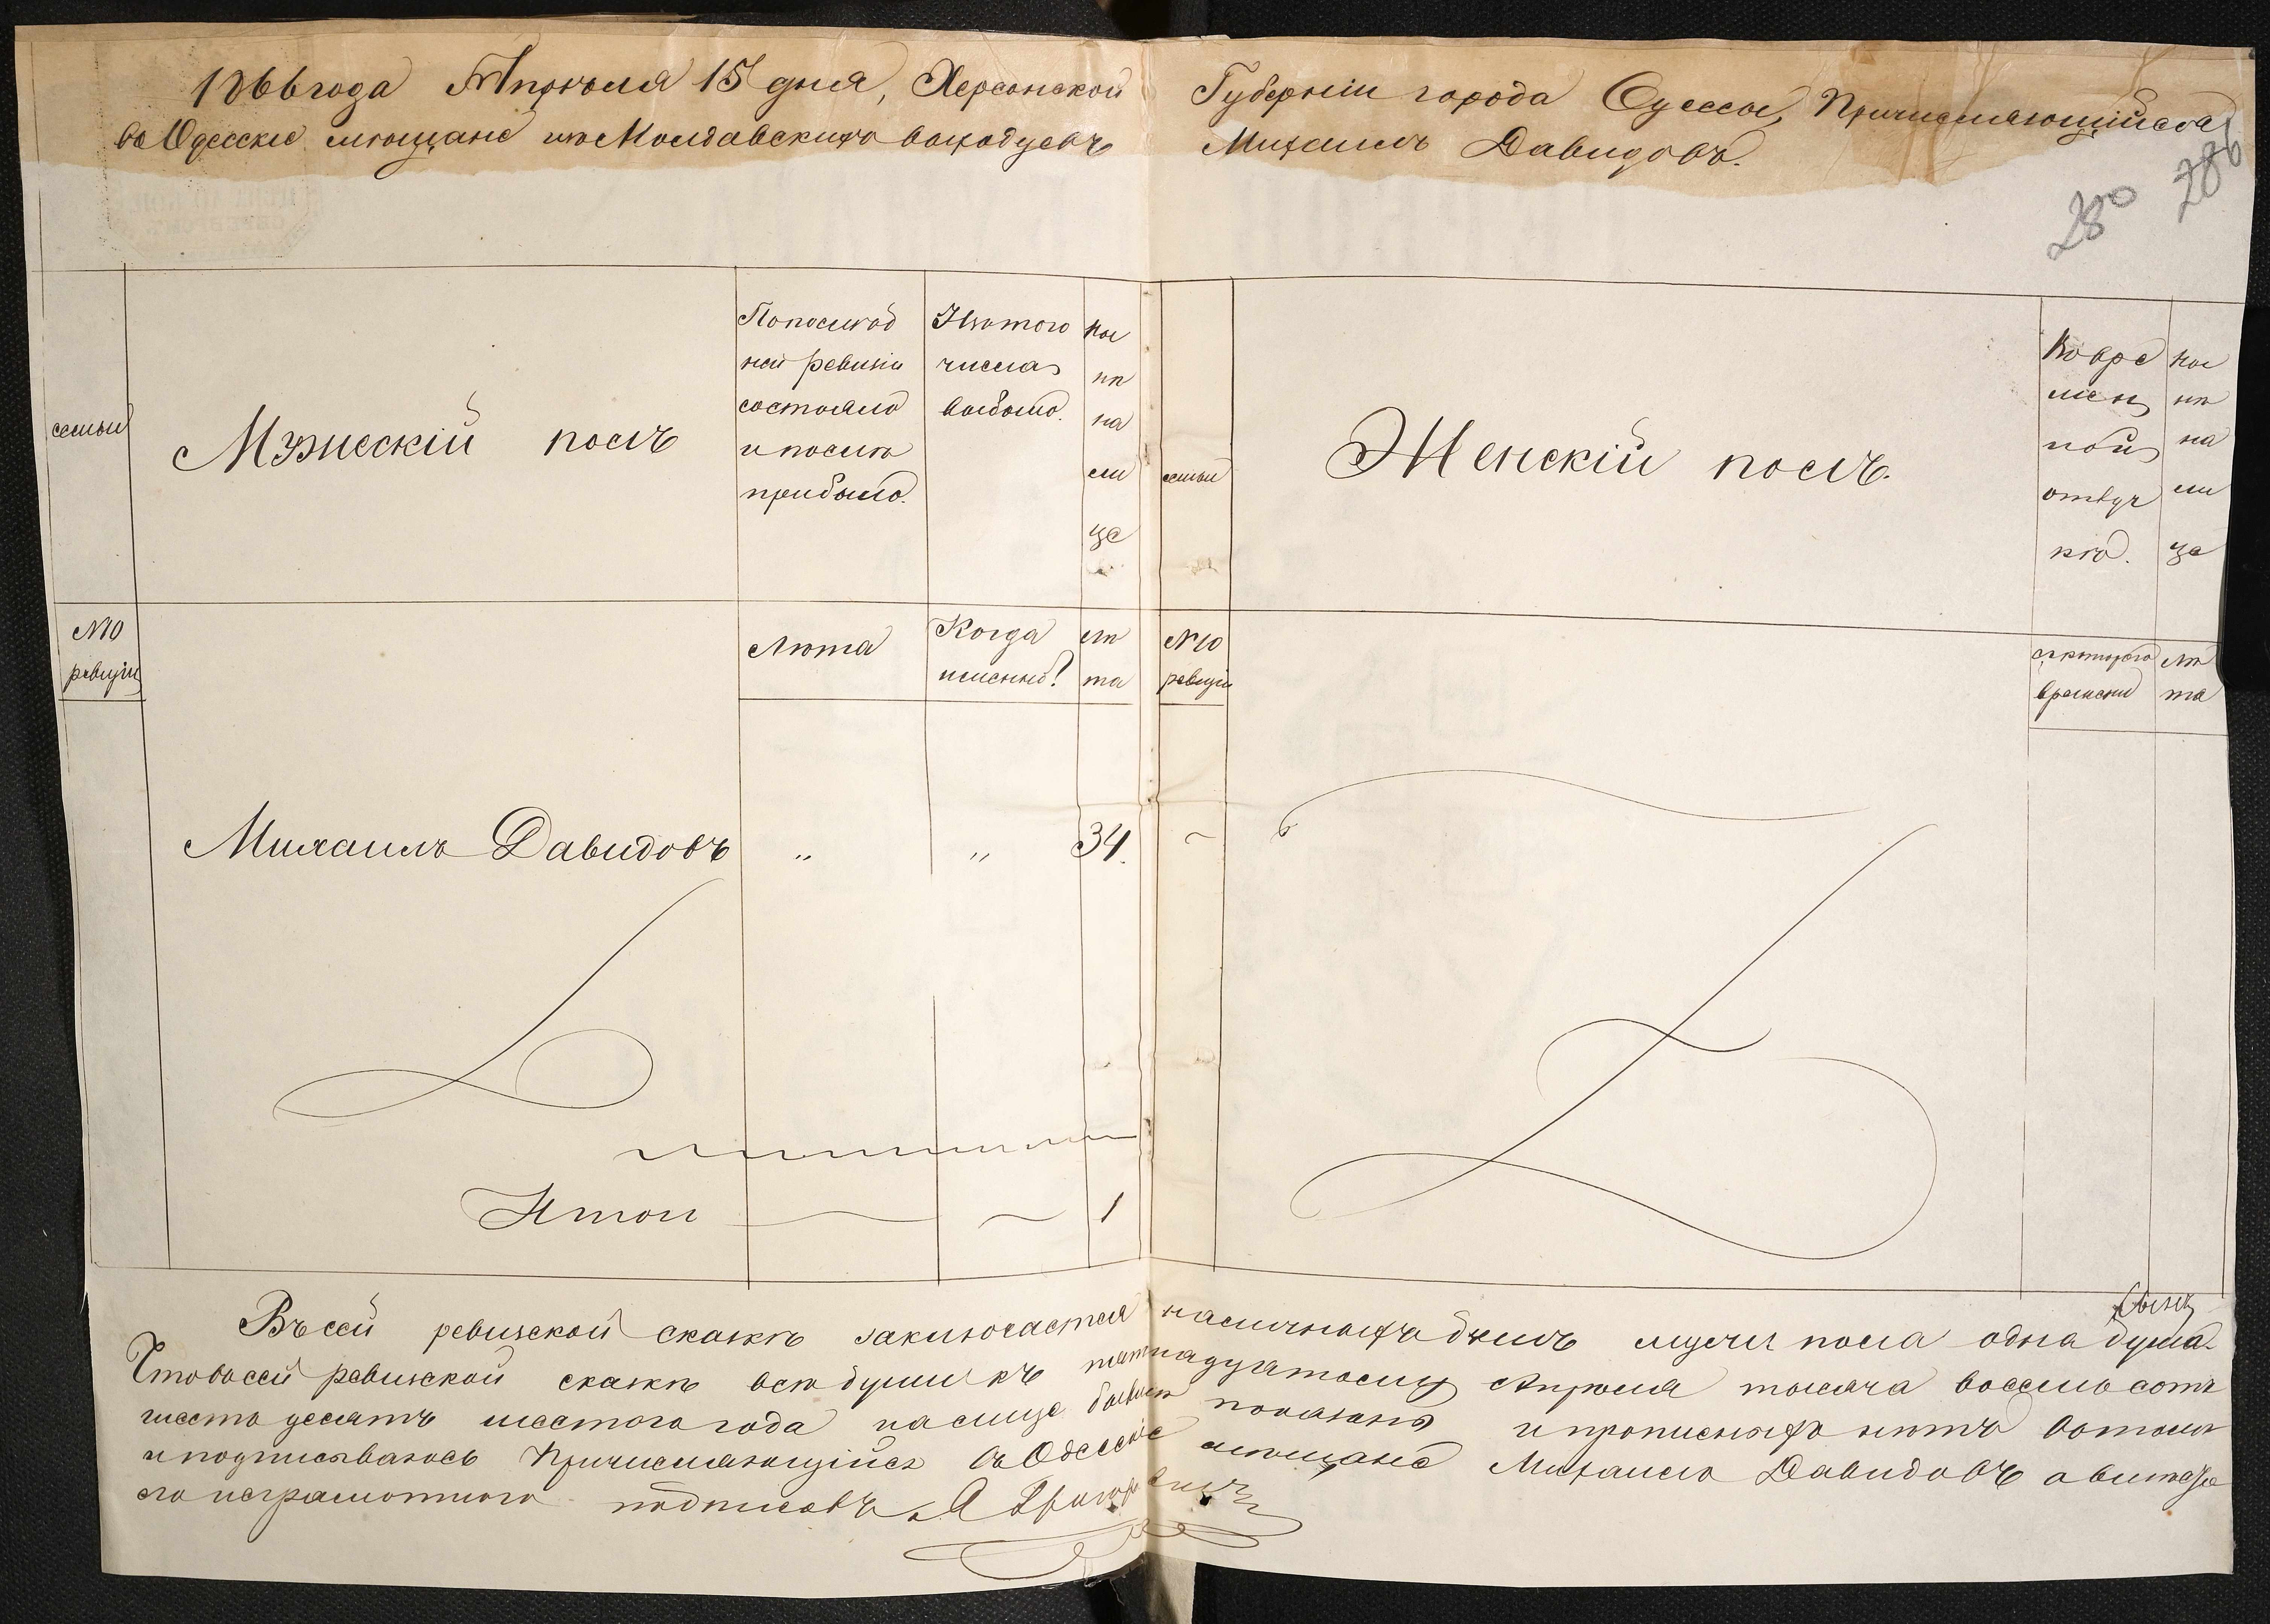 1866 года Апрѣля 15 дня, Херсонской Губерніи города Одессы, Причисляющійся
въ Одесскіе мѣщане изъ Молдавскихъ выходцевъ Михаилъ Давидовъ.
280 286
семьи
Мужескій полъ
По послѣд
ней ревизіи
состояло
и послѣ
прибыло.
Изъ того
числа
выбыло.
Ны
нѣ
на
ли
це
семьи
Женскій полъ.
Во вре
мен
ной
отлуч
кѣ.
Ны
нѣ
на
ли
це
№ 10
ревизіи
Лѣта
Когда
именно?
Лѣ
та
№ 10
ревизіи
Съ котораго
времени
Лѣ
та
Михаилъ Давидовъ " " 34.
Итого 1
Въ сей ревизской сказкѣ заключается наличныхъ душъ мужеска пола одна душа.
Что въ сей ревизской сказкѣ всѣ души къ пятнадцатому Апрѣля тысяча восемь сотъ
шесть десятъ шестого года на лице бывшія показаны и прописныхъ нѣтъ въ томъ
и подписываюсь Причисляющійся въ Одесскіе мѣщане Михаилъ Давидовъ а вмѣсто
его неграмотного подписалъ